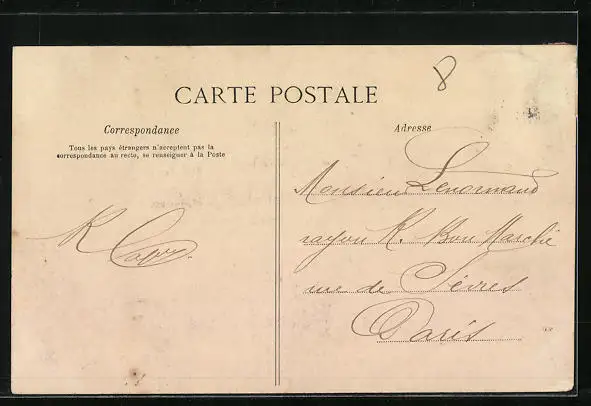 8
CARTE POSTALE
Correspondance
Tous les pays étrangers n'acceptent pas la
correspondance au recto, se renseigner à la Poste
R Capy
Adresse
Monsieur Lenormand
rayon K. Bon Marché
rue de Sèvres
Paris